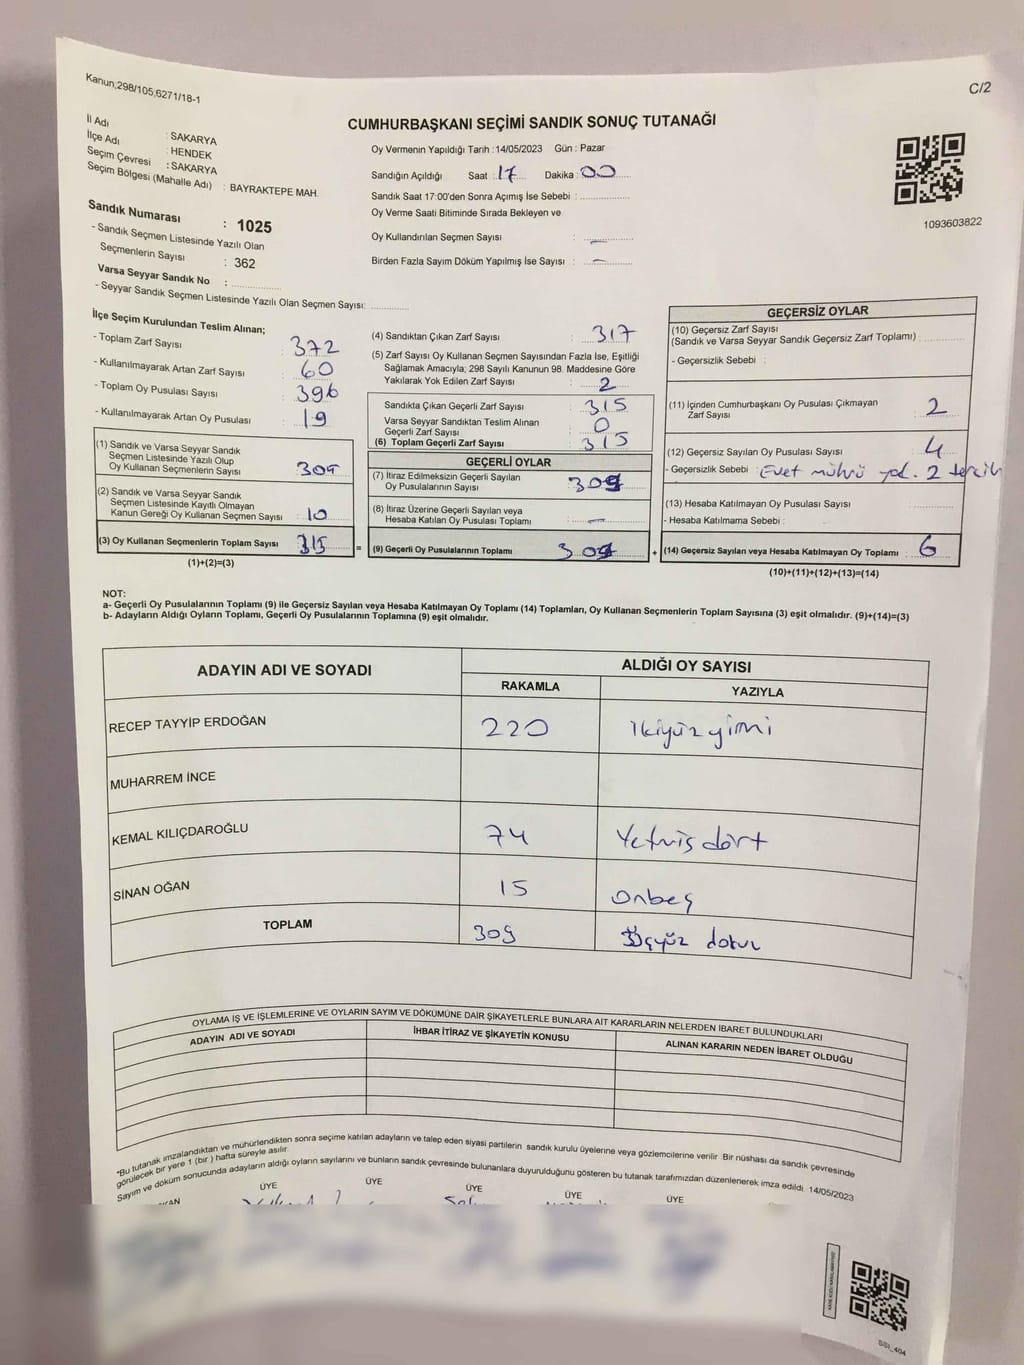 Kanun;298/105,6271/18-1
C/2
CUMHURBAŞKANI SEÇİMİ SANDIK SONUÇ TUTANAĞI
İl Adı : SAKARYA
İlçe Adı : HENDEK
Seçim Çevresi : SAKARYA
Seçim Bölgesi (Mahalle Adı) : BAYRAKTEPE MAH.
Sandık Numarası : 1025
- Sandık Seçmen Listesinde Yazılı Olan
Seçmenlerin Sayısı : 362
Varsa Seyyar Sandık No :
- Seyyar Sandık Seçmen Listesinde Yazılı Olan Seçmen Sayısı:
Oy Vermenin Yapıldığı Tarih :14/05/2023 Gün : Pazar
Sandığın Açıldığı Saat : 17 Dakika : 00
Sandık Saat 17:00'den Sonra Açımış İse Sebebi :
Oy Verme Saati Bitiminde Sırada Bekleyen ve
Oy Kullandırılan Seçmen Sayısı : —
Birden Fazla Sayım Döküm Yapılmış İse Sayısı : —
1093603822
İlçe Seçim Kurulundan Teslim Alınan;
- Toplam Zarf Sayısı : 372
- Kullanılmayarak Artan Zarf Sayısı : 60
- Toplam Oy Pusulası Sayısı : 396
- Kullanılmayarak Artan Oy Pusulası : 19
(1) Sandık ve Varsa Seyyar Sandık
Seçmen Listesinde Yazılı Olup
Oy Kullanan Seçmenlerin Sayısı :
(2) Sandık ve Varsa Seyyar Sandık
Seçmen Listesinde Kayıtlı Olmayan
Kanun Gereği Oy Kullanan Seçmen Sayısı : 10
(3) Oy Kullanan Seçmenlerin Toplam Sayısı : 315
(1)+(2)=(3)
(4) Sandıktan Çıkan Zarf Sayısı : 317
(5) Zarf Sayısı Oy Kullanan Seçmen Sayısından Fazla İse, Eşitliği
Sağlamak Amacıyla; 298 Sayılı Kanunun 98. Maddesine Göre
Yakılarak Yok Edilen Zarf Sayısı : 2
Sandıkta Çıkan Geçerli Zarf Sayısı : 315
Varsa Seyyar Sandıktan Teslim Alınan
Geçerli Zarf Sayısı : 0
(6) Toplam Geçerli Zarf Sayısı : 315
GEÇERLİ OYLAR
(7) İtiraz Edilmeksizin Geçerli Sayılan
Oy Pusulalarının Sayısı : 309
(8) İtiraz Üzerine Geçerli Sayılan veya
Hesaba Katılan Oy Pusulası Toplamı : —
= (9) Geçerli Oy Pusulalarının Toplamı 309 +
GEÇERSİZ OYLAR
(10) Geçersiz Zarf Sayısı
(Sandık ve Varsa Seyyar Sandık Geçersiz Zarf Toplamı) :
- Geçersizlik Sebebi :
(11) İçinden Cumhurbaşkanı Oy Pusulası Çıkmayan
Zarf Sayısı : 2
(12) Geçersiz Sayılan Oy Pusulası Sayısı : 4
- Geçersizlik Sebebi : Evet mührü yok. 2 tercih
(13) Hesaba Katılmayan Oy Pusulası Sayısı :
- Hesaba Katılmama Sebebi :
(14) Geçersiz Sayılan veya Hesaba Katılmayan Oy Toplamı : 6
(10)+(11)+(12)+(13)=(14)
NOT:
a- Geçerli Oy Pusulalarının Toplamı (9) ile Geçersiz Sayılan veya Hesaba Katılmayan Oy Toplamı (14) Toplamları, Oy Kullanan Seçmenlerin Toplam Sayısına (3) eşit olmalıdır. (9)+(14)=(3)
b- Adayların Aldığı Oyların Toplamı, Geçerli Oy Pusulalarının Toplamına (9) eşit olmalıdır.
ADAYIN ADI VE SOYADI
ALDIĞI OY SAYISI
RAKAMLA YAZIYLA
RECEP TAYYİP ERDOĞAN 220 ikiyüz yirmi
MUHARREM İNCE
KEMAL KILIÇDAROĞLU 74 Yetmiş dört
SİNAN OĞAN 15 onbeş
TOPLAM 309 Üçyüz dokuz
OYLAMA İŞ VE İŞLEMLERİNE VE OYLARIN SAYIM VE DÖKÜMÜNE DAİR ŞİKAYETLERLE BUNLARA AİT KARARLARIN NELERDEN İBARET BULUNDUKLARI
ADAYIN ADI VE SOYADI İHBAR İTİRAZ VE ŞİKAYETİN KONUSU ALINAN KARARIN NEDEN İBARET OLDUĞU
"Bu tutanak imzalandıktan ve mühürlendikten sonra seçime katılan adayların ve talep eden siyasi partilerin sandık kurulu üyelerine veya gözlemcilerine verilir. Bir nüshası da sandık çevresinde
görülecek bir yere 1 (bir ) hafta süreyle asılır.
Sayım ve döküm sonucunda adayların aldığı oyların sayılarını ve bunların sandık çevresinde bulunanlara duyurulduğunu gösteren bu tutanak tarafımızdan düzenlenerek imza edildi. 14/05/2023
ÜYE ÜYE ÜYE ÜYE ÜYE
SSI_404